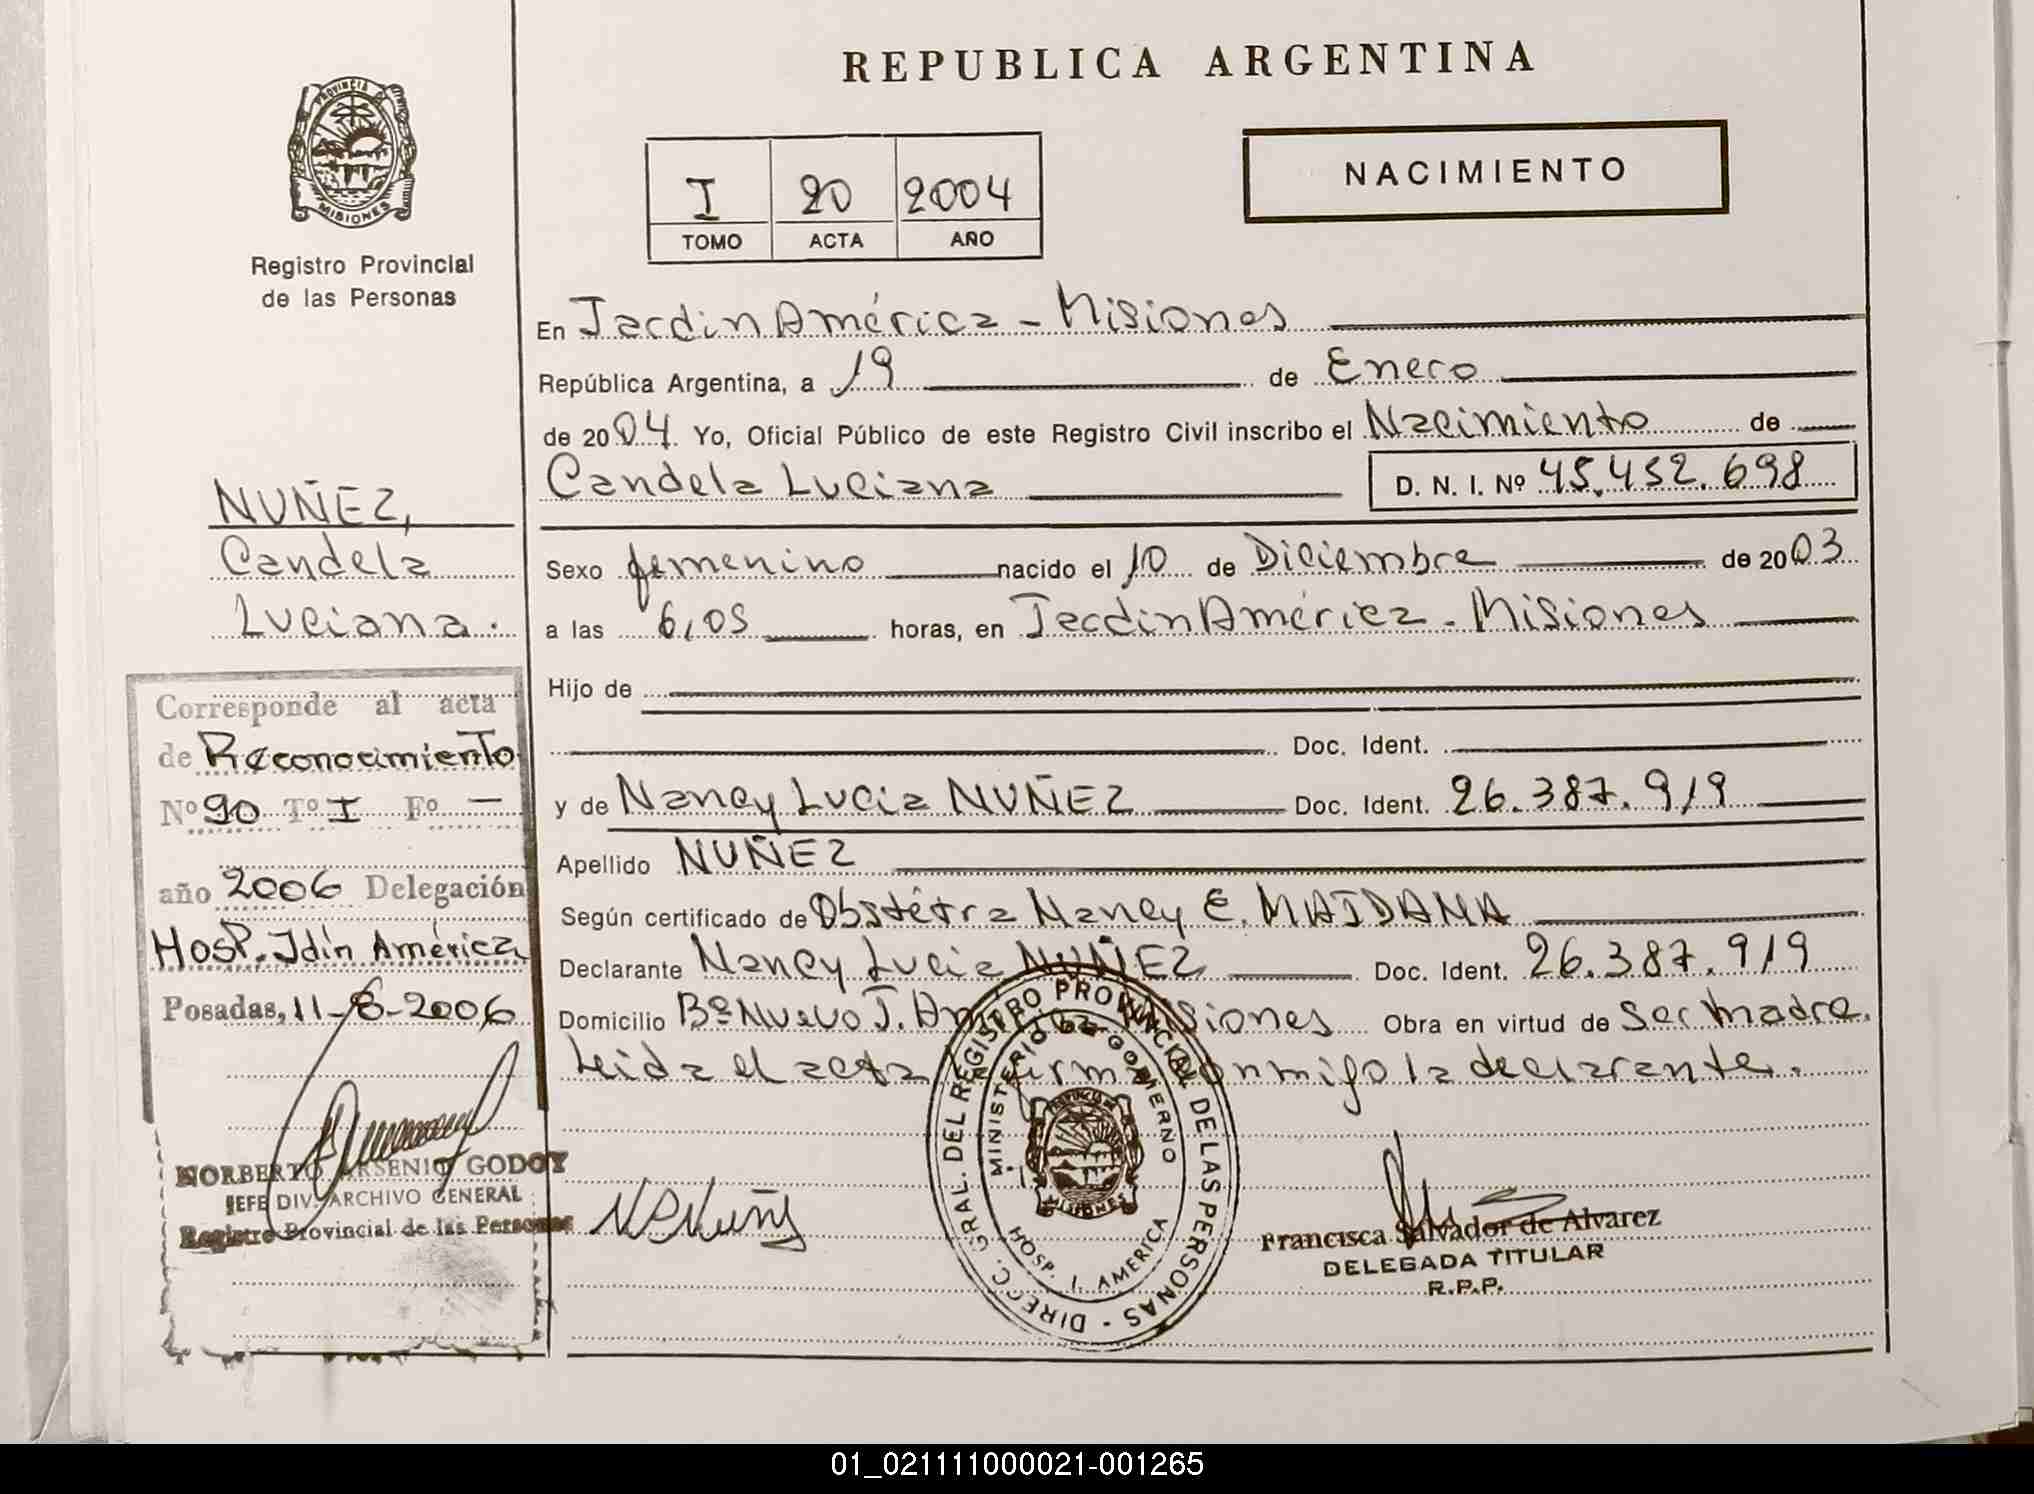 REPUBLICA ARGENTINA
PROVINCIA DE MISIONES
Registro Provincial
de las Personas
I 20 2004
TOMO ACTA AÑO
NACIMIENTO
En Jardin América - Misiones
República Argentina, a 19 de Enero
de 2004. Yo, Oficial Público de este Registro Civil inscribo el Nacimiento de
Candela Luciana D. N. I. Nº 45.452.698
NUÑEZ,
Candela
Luciana.
Sexo femenino nacido el 10 de Diciembre de 2003
a las 6,05 horas, en Jardin América - Misiones
Hijo de
Doc. Ident.
y de Nancy Lucia NUÑEZ Doc. Ident. 26.387.919
Apellido NUÑEZ
Según certificado de Obstétra Nancy E. MAIDANA
Declarante Nancy Lucia NUÑEZ Doc. Ident. 26.387.919
Domicilio Bº Nuevo J. Misiones Obra en virtud de Ser Madre.
Leida el acta firma conmigo la declarante.
Corresponde al acta
de Reconocimiento
Nº 90 Tº I Fº -
año 2006 Delegación
Hosp. Jdín América
Posadas, 11-8-2006
NORBERTO ARSENIO GODOY
JEFE DIV. ARCHIVO GENERAL
Registro Provincial de las Personas
DIREC. GRAL. DEL REGISTRO PROVINCIAL DE LAS PERSONAS -
MINISTERIO DE GOBIERNO
HOSP. J. AMERICA
Francisca Salvador de Alvarez
DELEGADA TITULAR
R.P.P.
01_021111000021-001265